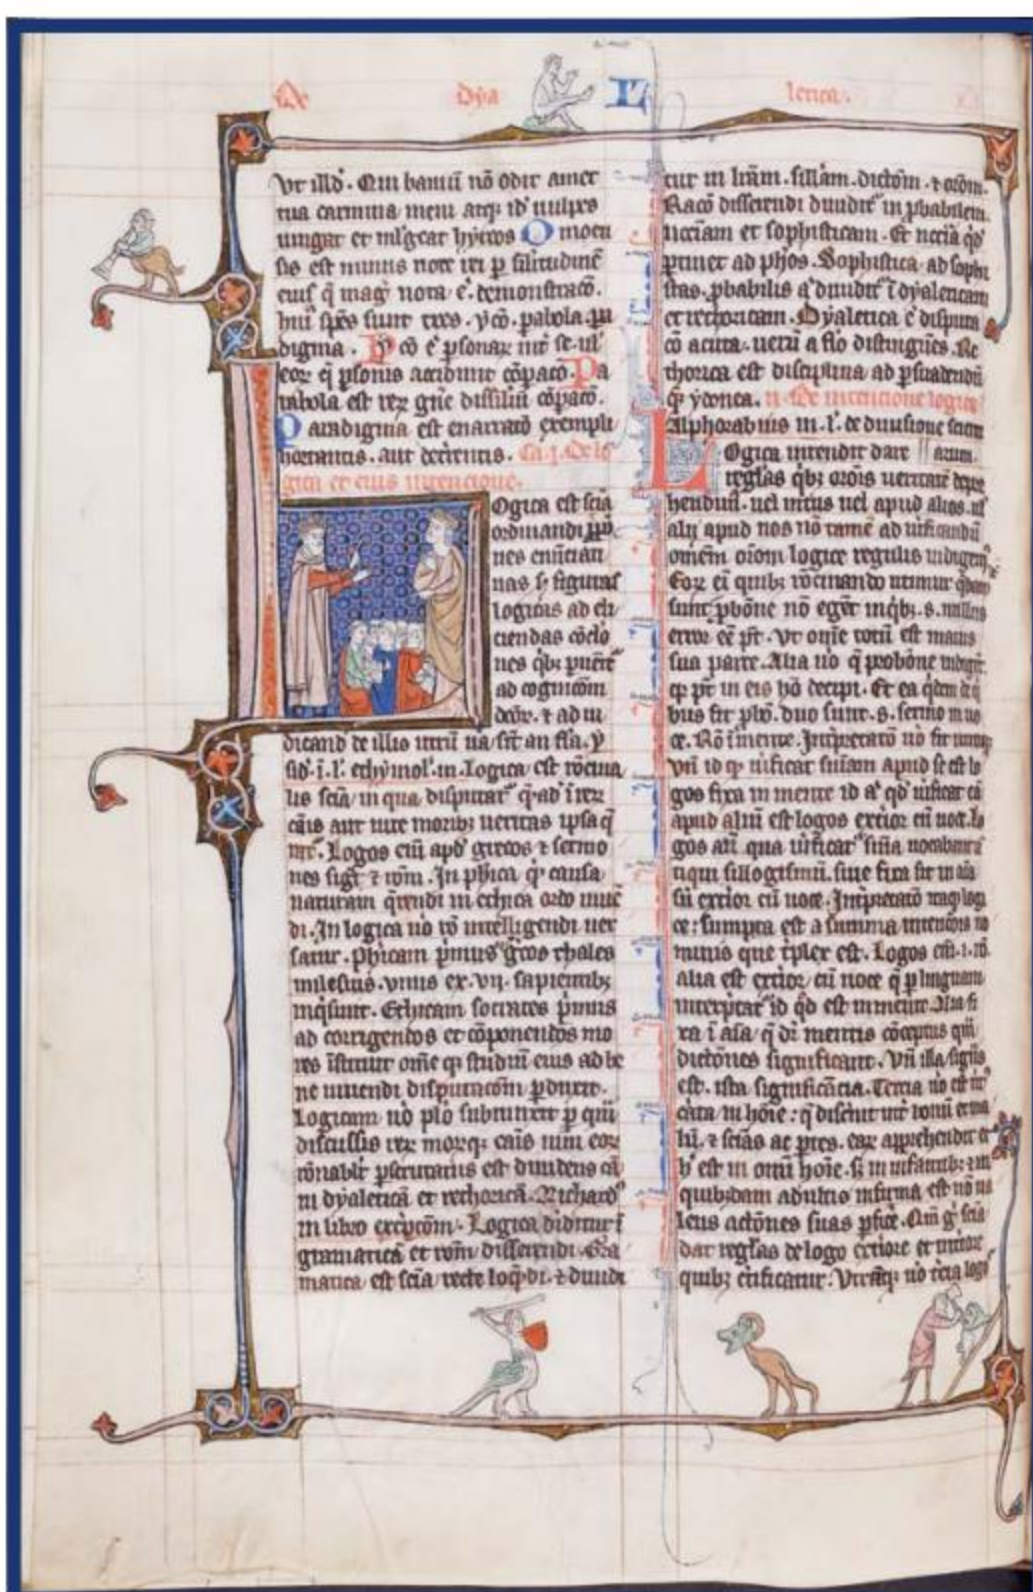 De dya L letica.
Vt illd'. Qui bauiū nō odit amet
tua carmina meui atq; id' uulpes
iungat et mlgeat hyrcos Omoeu
sis est minus note rei p silitudinē
eius q̄ mag' nota ē. demonstracō.
huī spēs sunt tres. ycō. pabola. pa
digma. Ycō ē psonaꝝ int' se. ul'
eoꝝ q̄ psonis accidunt cōpacō. Pa
rabola est reꝝ gn̄e dissiliū cōpacō.
Paradigma est enarratō exempli
hortantis. aut deterrentis. Ca. j. De lo
gica et eius intencione.
Ogica est sciā
ordinandi ppō
nes enūciati
uas s' figuras
logicas ad eli
ciendas cōclō
nes q̄b; puēit'
ad cogniciōm
ad iu
dicand' de illis utrū ua sit an fl'a. y
sid'. i. l. ethymol'. in. Logica est rōcina
lis sciā in qua disputat' q̄ ad
aut uite morib; ueritas ipsa q̄
rit'. Logos eni apd' grecos & sermo
nes sig't & rōm. In phica q̄ causa
naturam q̄rendi in ethica ordo uiuē
di. In logica uo rō intelligendi uer
satur. Phicam p̄mus ap' grecos thales
milesius. unus ex. vij. sapientib;
inq̄siuit. Ethicam socrates p̄mus
ad corrigendos et cōponendos mo
res īstituit ome q; studiū eius ad be
ne uiuendi disputacōm pduxit.
Logicam uo plō subiunxit p quā
discussis reꝝ morq; cāis uim eoꝝ
rōnabilr' pscrutatus est diuidens eā
in dyaleticā et rethoricā. Richard'
in libro excepcōm. Logica diditur ī
gramaticā et rōm disserendi. Gra
matica est sciā recte loq̄ndi. & diuidi
tur in lrām. sillam. dictōm. & orōm.
Racō disserendi diuidit' in pbabilem.
necciam et sophisticam. Et neccia q̄d'
ptinet ad phos. Sophistica ad sophi
stas. pbabilis a' diuidit' ī dyaleticam
et rethoricam. Dyaletica ē disputa
cō acuta. ueru a flo distinguēs. Re
thorica est disciplina ad psuadendū
q; ydonea. ij. De intencione logice
Alphorabius in. l. de diuisione scien
Logica intendit dare || ciarum.
reglas q̄b; orōis ueritatē depre
hendim'. uel intus uel apud alios. ul'
alij apud nos nō tamē ad uificandū
omēm orōm logice regulis indigem'.
Eoꝝ ei quib; rōcinando utimur q̄dam
sunt pbōne nō egēt in q̄b; s. nullus
error eē pt'. Vt om̄e totū est maius
sua parte. Alia uo q̄ probōne indigēt
q; pt' in eis hō decipi. Et ea q̄dem de q̄
bus fit pbō. duo sunt. s. sermo in uo
ce. Rō ī mente.
Vn' id q; uificat sniam apud se est lo
gos fixa in mente id a' qd' uificat eā
apud aliū est logos exrior cū uoce. lo
gos aū qua uificat' snia uocabant
tiqui sillogismū. siue fixa sit in aīa
siue exrior cū uoce. Intpretatō itaq; logi
ce: sumpta est a summa intencōis no
minis que tplex est. Logos em. i. rō.
alia est exrior cū uoce q̄ p linguam
interptat' id q̄d est in mente. Alia fi
xa ī aīa q̄ dr' mentis cōceptus quē
dictōnes significant. Vn' illa signūs
est. ista significācia. Tercia uo est
in hoīe: q̄ disc'nit int' bonū et ma
lū. & sciās ac artes. eaꝝ apprehendit et
h' est in omī hoīe. s; in infantib; & in
quib;dam adultis infirma est nō ua
lens actōnes suas pfice. Qm̄ g' sciā
dat reglas de logo exriore et intriore
quib; c'tificatur. Vtrāq; uo t'cia logo